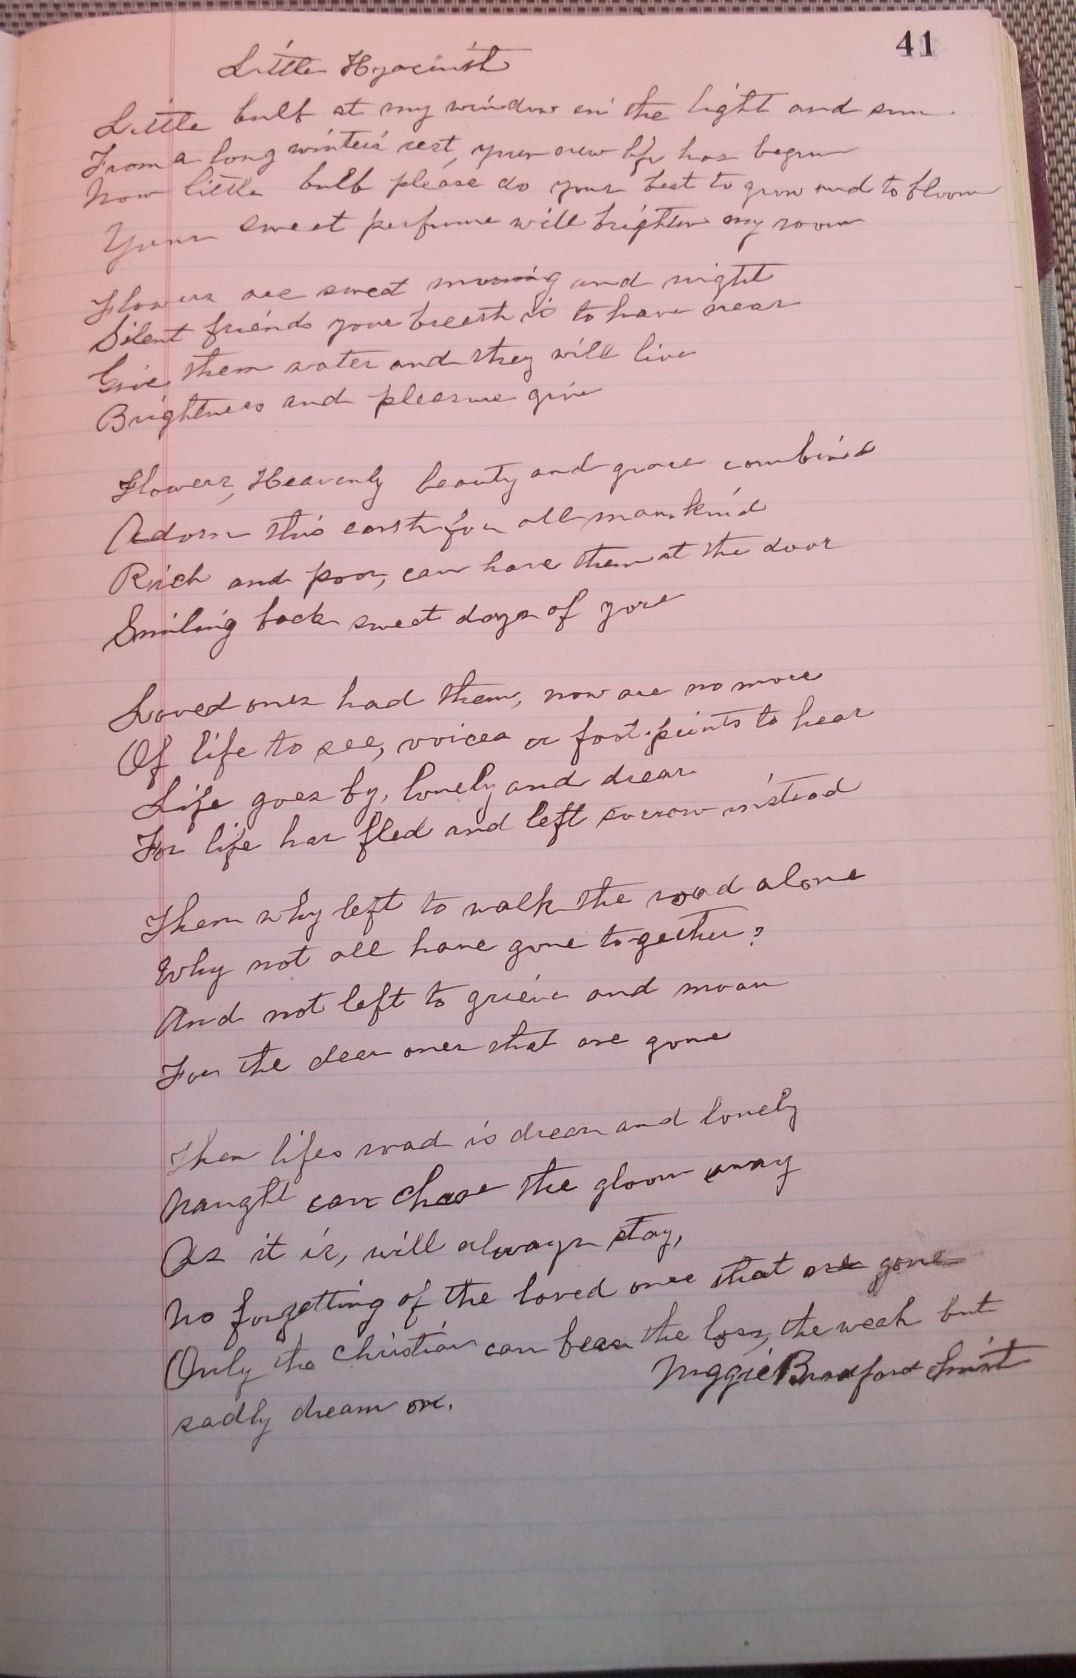 41
Little Hyacinth
Little bulb at my window in the light and sun.
From a long winter's rest, your new life has begun
Now little bulb please do your best to grow and to bloom
Your sweet perfume will brighten my room
Flowers are sweet morning and night
Silent friends your breath is to have near
Give them water and they will live
Brightness and pleasure give
Flowers, Heavenly beauty and grace combined
Adorn this earth for all man-kind
Rich and poor, can have them at the door
Smiling back sweet days of yore
Loved ones had them, now are no more
Of life to see, voices or foot-peints to hear
Life goes by, lonely and drear
For life has fled and left sorrow instead
Then why left to walk the road alone
Why not all have gone to-gether?
And not left to grieve and moan
For the dear ones that are gone
Then lifes road is drear and lonely
Naught can chase the gloom away
As it is, will always stay,
No forgetting of the loved ones that are gone
Only the christian can bear the loss, the weak but
sadly dream on.
Bradford Smith